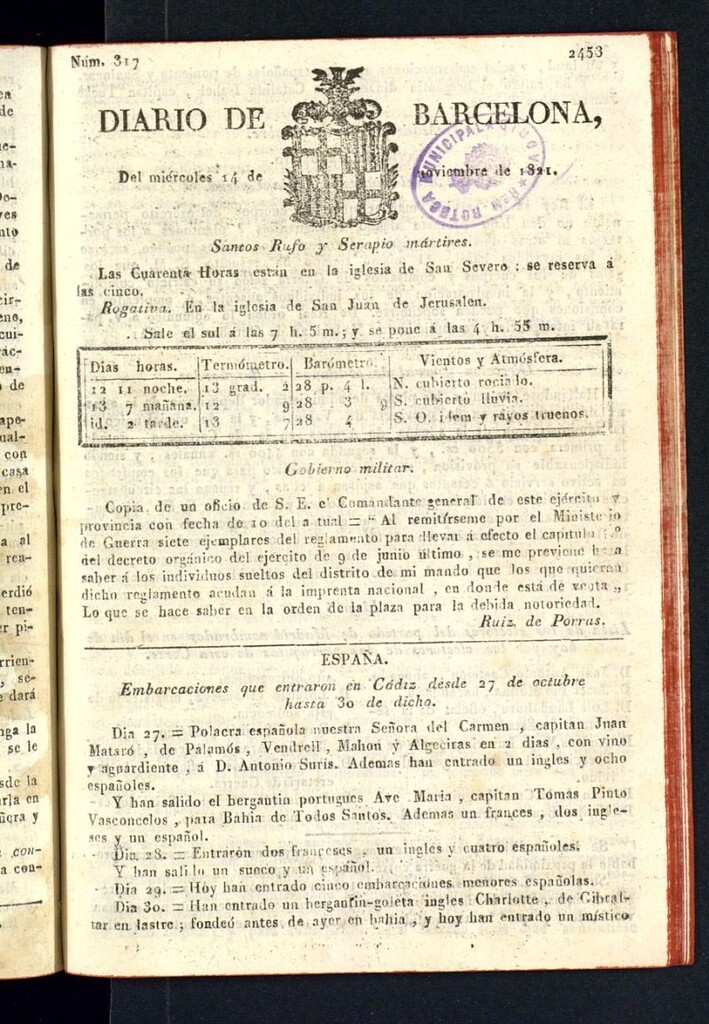 Núm. 317
2453
DIARIO DE BARCELONA,
Del miércoles 14 de noviembre de 1821.
Santos Rufo y Serapio mártires.
Las Cuarenta Horas están en la iglesia de San Severo : se reserva á
las cinco.
Rogativa. En la iglesia de San Juan de Jerusalen.
Sale el sol á las 7 h. 5 m.; y se pone á las 4 h. 55 m.
Dias horas. Termómetro. Barómetro. Vientos y Atmósfera.
12 11 noche. 13 grad. 2 28 p. 4 l. N. cubierto rociado.
13 7 mañana. 12 9 28 3 9 S. cubierto lluvia.
id. 2 tarde. 13 7 28 4 S. O. idem y rayos truenos.
Gobierno militar.
Copia de un oficio de S. E. el Comandante general de este ejército y
provincia con fecha de 10 del actual = " Al remitírseme por el Ministerio
de Guerra siete ejemplares del reglamento para llevar á efecto el capítulo
del decreto orgánico del ejercito de 9 de junio último , se me previene haga
saber á los individuos sueltos del distrito de mi mando que los que quieran
dicho reglamento acudan á la imprenta nacional , en donde está de venta „
Lo que se hace saber en la orden de la plaza para la debida notoriedad.
Ruiz de Porras.
ESPAÑA.
Embarcaciones que entraron en Cádiz desde 27 de octubre
hasta 30 de dicho.
Dia 27. = Polacra española nuestra Señora del Carmen , capitan Juan
Mataró , de Palamós , Vendrell , Mahon y Algeciras en 2 dias , con vino
y aguardiente , á D. Antonio Surís. Ademas han entrado un ingles y ocho
españoles.
Y han salido el bergantin portugues Ave Maria , capitan Tomas Pinto
Vasconcelos , para Bahia de Todos Santos. Ademas un frances , dos ingle-
ses y un español.
Dia 28. = Entraron dos franceses , un ingles y cuatro españoles.
Y han salido un sueco y un español.
Dia 29. = Hoy han entrado cinco embarcaciones menores españolas.
Dia 30. = Han entrado un bergantin-goleta ingles Charlotte , de Gibral-
tar en lastre ; fondeó antes de ayer en bahia , y hoy han entrado un místico